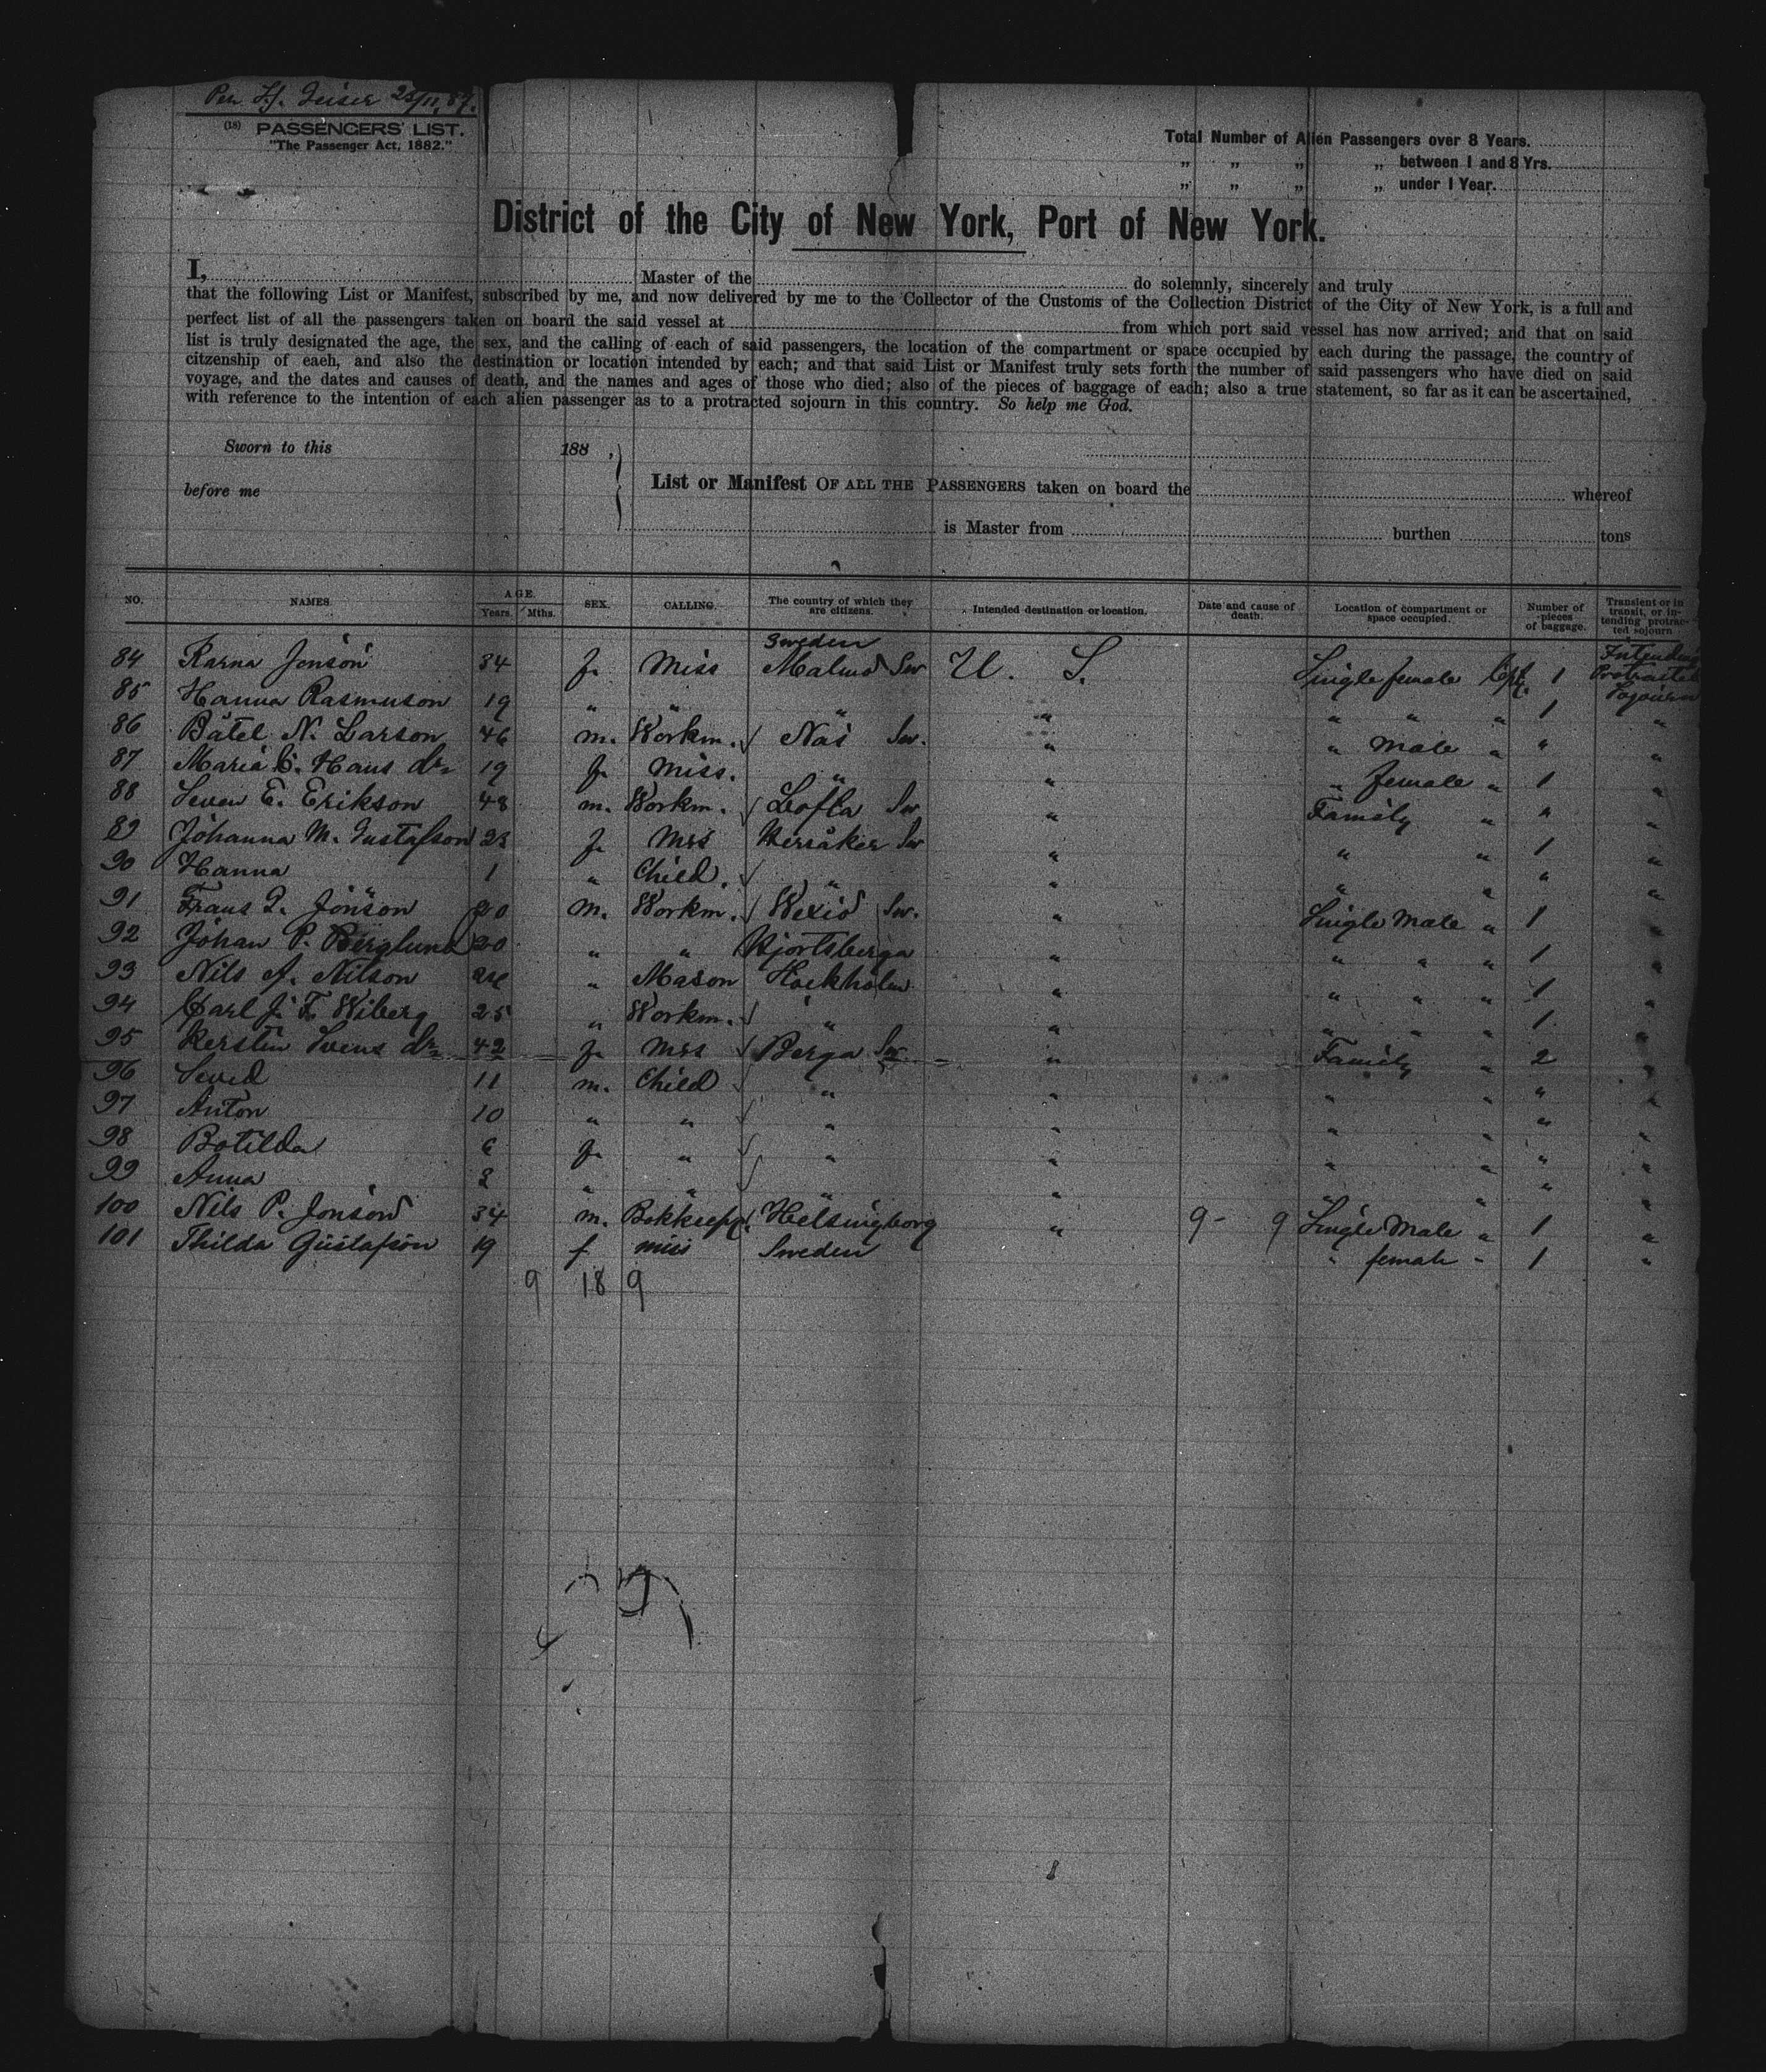 Per S/S. Geiser 25/11. 87.
(18) PASSENGERS' LIST.
"The Passenger Act, 1882."
Total Number of Alien Passengers over 8 Years.
„ „ „ „ between 1 and 8 Yrs.
„ „ „ „ under 1 Year.
District of the City of New York, Port of New York.
I, Master of the do solemnly, sincerely and truly
that the following List or Manifest, subscribed by me, and now delivered by me to the Collector of the Customs of the Collection District of the City of New York, is a full and
perfect list of all the passengers taken on board the said vessel at from which port said vessel has now arrived; and that on said
list is truly designated the age, the sex, and the calling of each of said passengers, the location of the compartment or space occupied by each during the passage, the country of
citzenship of eaeh, and also the destination or location intended by each; and that said List or Manifest truly sets forth the number of said passengers who have died on said
voyage, and the dates and causes of death, and the names and ages of those who died; also of the pieces of baggage of each; also a true statement, so far as it can be ascertained,
with reference to the intention of each alien passenger as to a protracted sojourn in this country. So help me God.
Sworn to this 188 ,
before me
List or Manifest OF ALL THE PASSENGERS taken on board the whereof
is Master from burthen tons
NO. NAMES. AGE. Years. Mths. SEX. CALLING. The country of which they are citizens. Intended destination or location. Date and cause of death. Location of compartment or space occupied. Number of pieces of baggage. Transient or in transit, or intending protracted sojourn
Sweden
84 Karna Jonson 34 f. Miss Malmö Sw U. S. Single female Cpt. 1 Intending Protracted Sojourn
85 Hanna Rasmuson 19 " " " " " " " 1 "
86 Båtel N. Larson 46 m. Workm. Näs Sw. " " Male " " "
87 Maria C. Hans dr. 19 f. Miss. " " " female " 1 "
88 Seven E. Erikson 48 m. Workm. Lofta Sw " Family " " "
89 Johanna M. Gustafson 23 f. Mrs Heråker Sw " " " 1 "
90 Hanna 1 " Child. " " " " " "
91 Frans J. Jönson 20 m. Workm. Wexiö Sw. " Single Male " 1 "
92 Johan P. Berglund 20 " " Hjortsberga " " " " 1 "
93 Nils A. Nilson " Mason Stockholm " " " " 1 "
94 Carl J. F. Wiberg 25 " Workm. " " " " " 1 "
95 Kersten Svens dr. 42 f. Mrs Berga Sw. " Family " 2 "
96 Seved 11 m. Child " " " " " "
97 Anton 10 " " " " " " " "
98 Botilda 6 f. " " " " " " "
99 Anna " " " " " " "
100 Nils P. Jonson 34 m. Bokkeep. Helsingborg " 9 - 9 Single Male " 1 "
101 Thilda Gustafson 19 f miss Sweden " female " 1 "
9 18 9